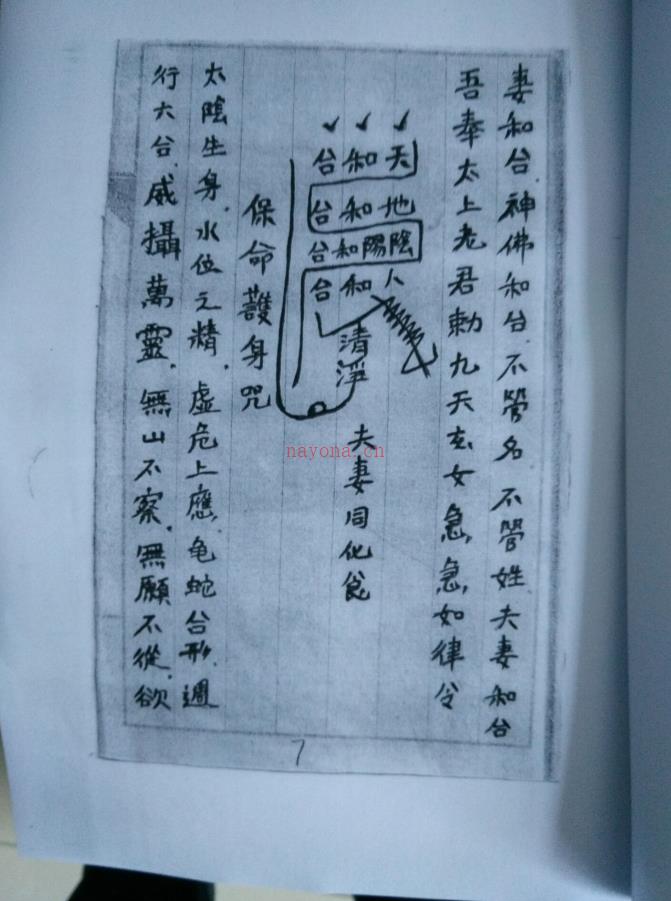 妻和合.神佛和合.不管名.不管姓.夫妻和合
吾奉太上老君勅九天玄女急,急,如律令
天和合
地和合
陰陽和合
人和合
清淨
夫妻同化食
保命護身咒
太陰生身.水位之精.虛危上應.龟蛇合形.週
行六合.威攝萬靈.無山不察.無願不從.欲
7
nayona.cn